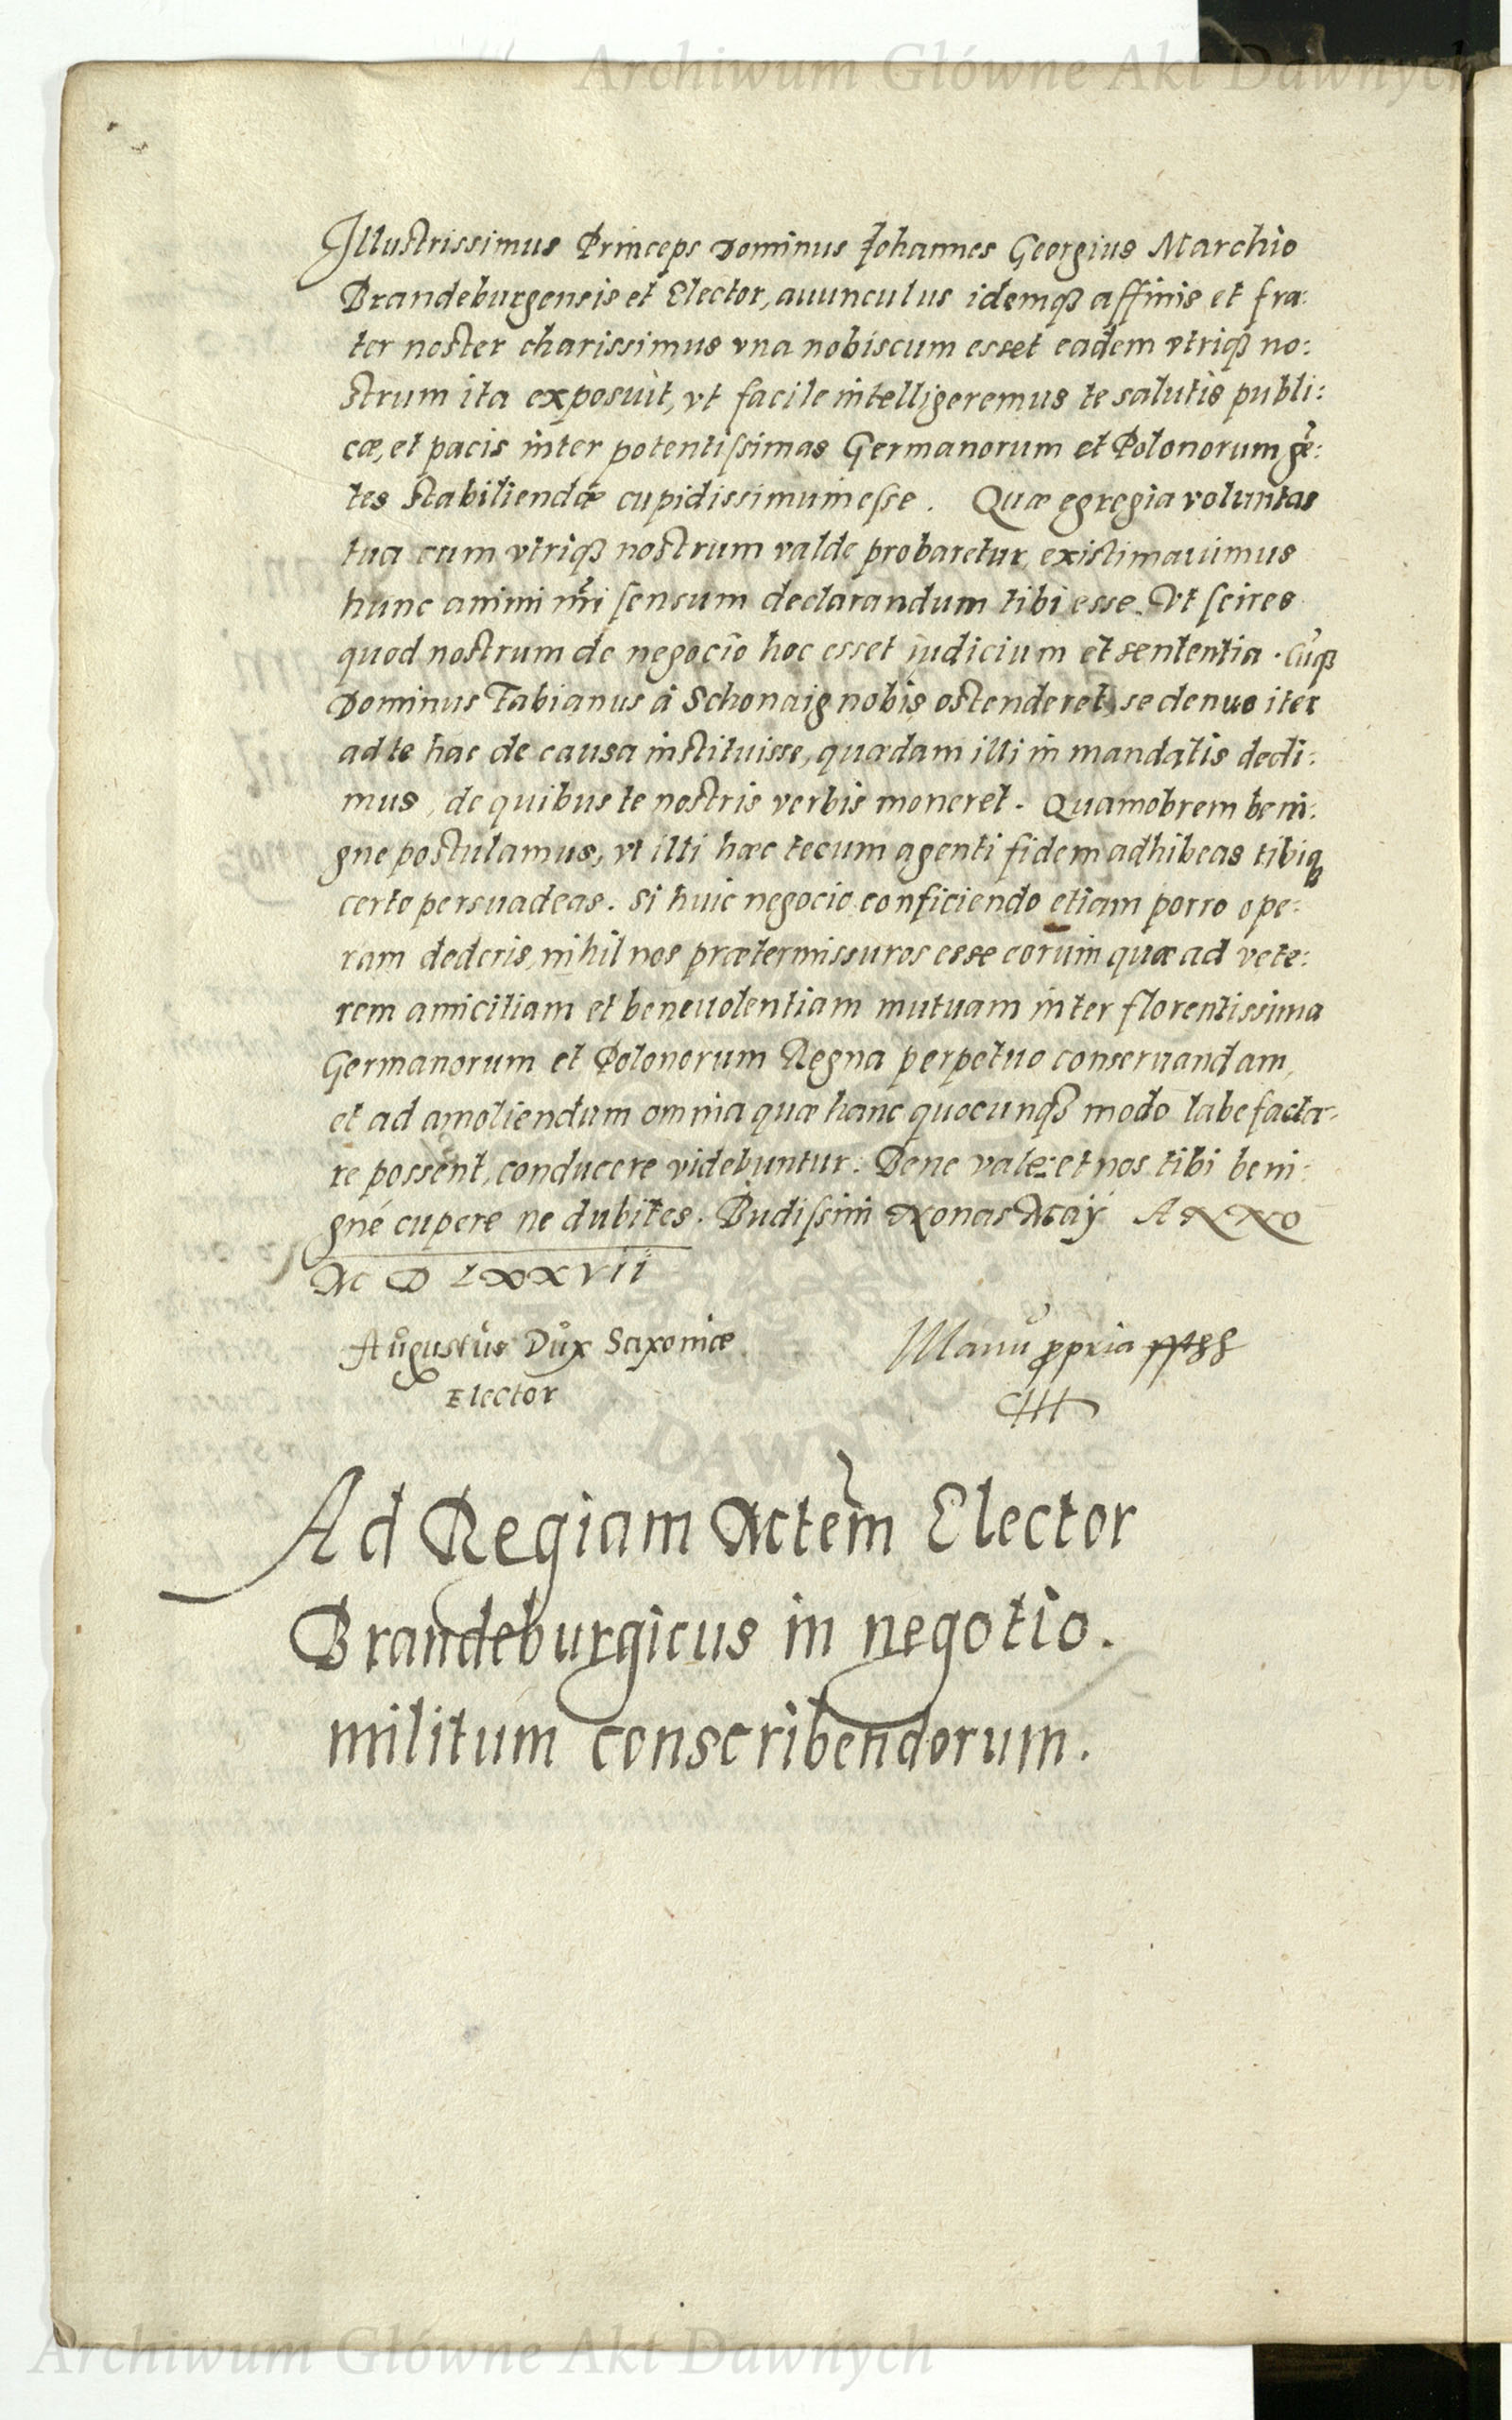 Archiwum Główne Akt Dawnych
Illustrissimus Princeps Dominus Johannes Georgius Marchio
Brandeburgensis et Elector, auunculus idemqꝫ affinis et fra:
ter noster charissimus vna nobiscum esset eadem vtriqꝫ no:
strum ita exposuit, vt facile intelligeremus te salutis publi:
cæ, et pacis inter potentiſsimas Germanorum et Polonorum gẽ:
tes stabiliendæ cupidissimum eſse. Quæ egregia voluntas
tua cum vtriqꝫ nostrum valde probaretur, existimauimus
hunc animi nr̃i ſensum declarandum tibi esse. Vt ſcires
quod nostrum de negocio hoc esset iudicium et sententia. Cũqꝫ
Dominus Fabianus à Schonaig nobis ostenderet, se denuo iter
ad te hac de causa instituisse, quædam illi in mandatis dedi:
mus, de quibus te nostris verbis moneret. Quamobrem beni:
gne postulamus, vt illi hæc tecum agenti fidem adhibeas tibiqꝫ
certo persuadeas. Si huic negocio conficiendo etiam porro ope:
ram dederis, nihil nos prætermissuros esse eorum quæ ad vete:
rem amicitiam et beneuolentiam mutuam inter florentissima
Germanorum et Polonorum Regna perpetuo conseruandam,
et ad amoliendum omnia quæ hanc quocunqꝫ modo labefacta:
re possent, conducere videbuntur. Bene vale: et nos tibi beni:
gné cupere ne dubites. Budiſsini Nonas Maÿ ANNO
M D LXXVII
Augustus Dux Saxoniæ Manu ꝓpria
Elector
Ad Regiam Mctem̃ Elector
Brandeburgicus in negotio.
militum conscribendorum.
DAWNYCH
Archiwum Główne Akt Dawnych